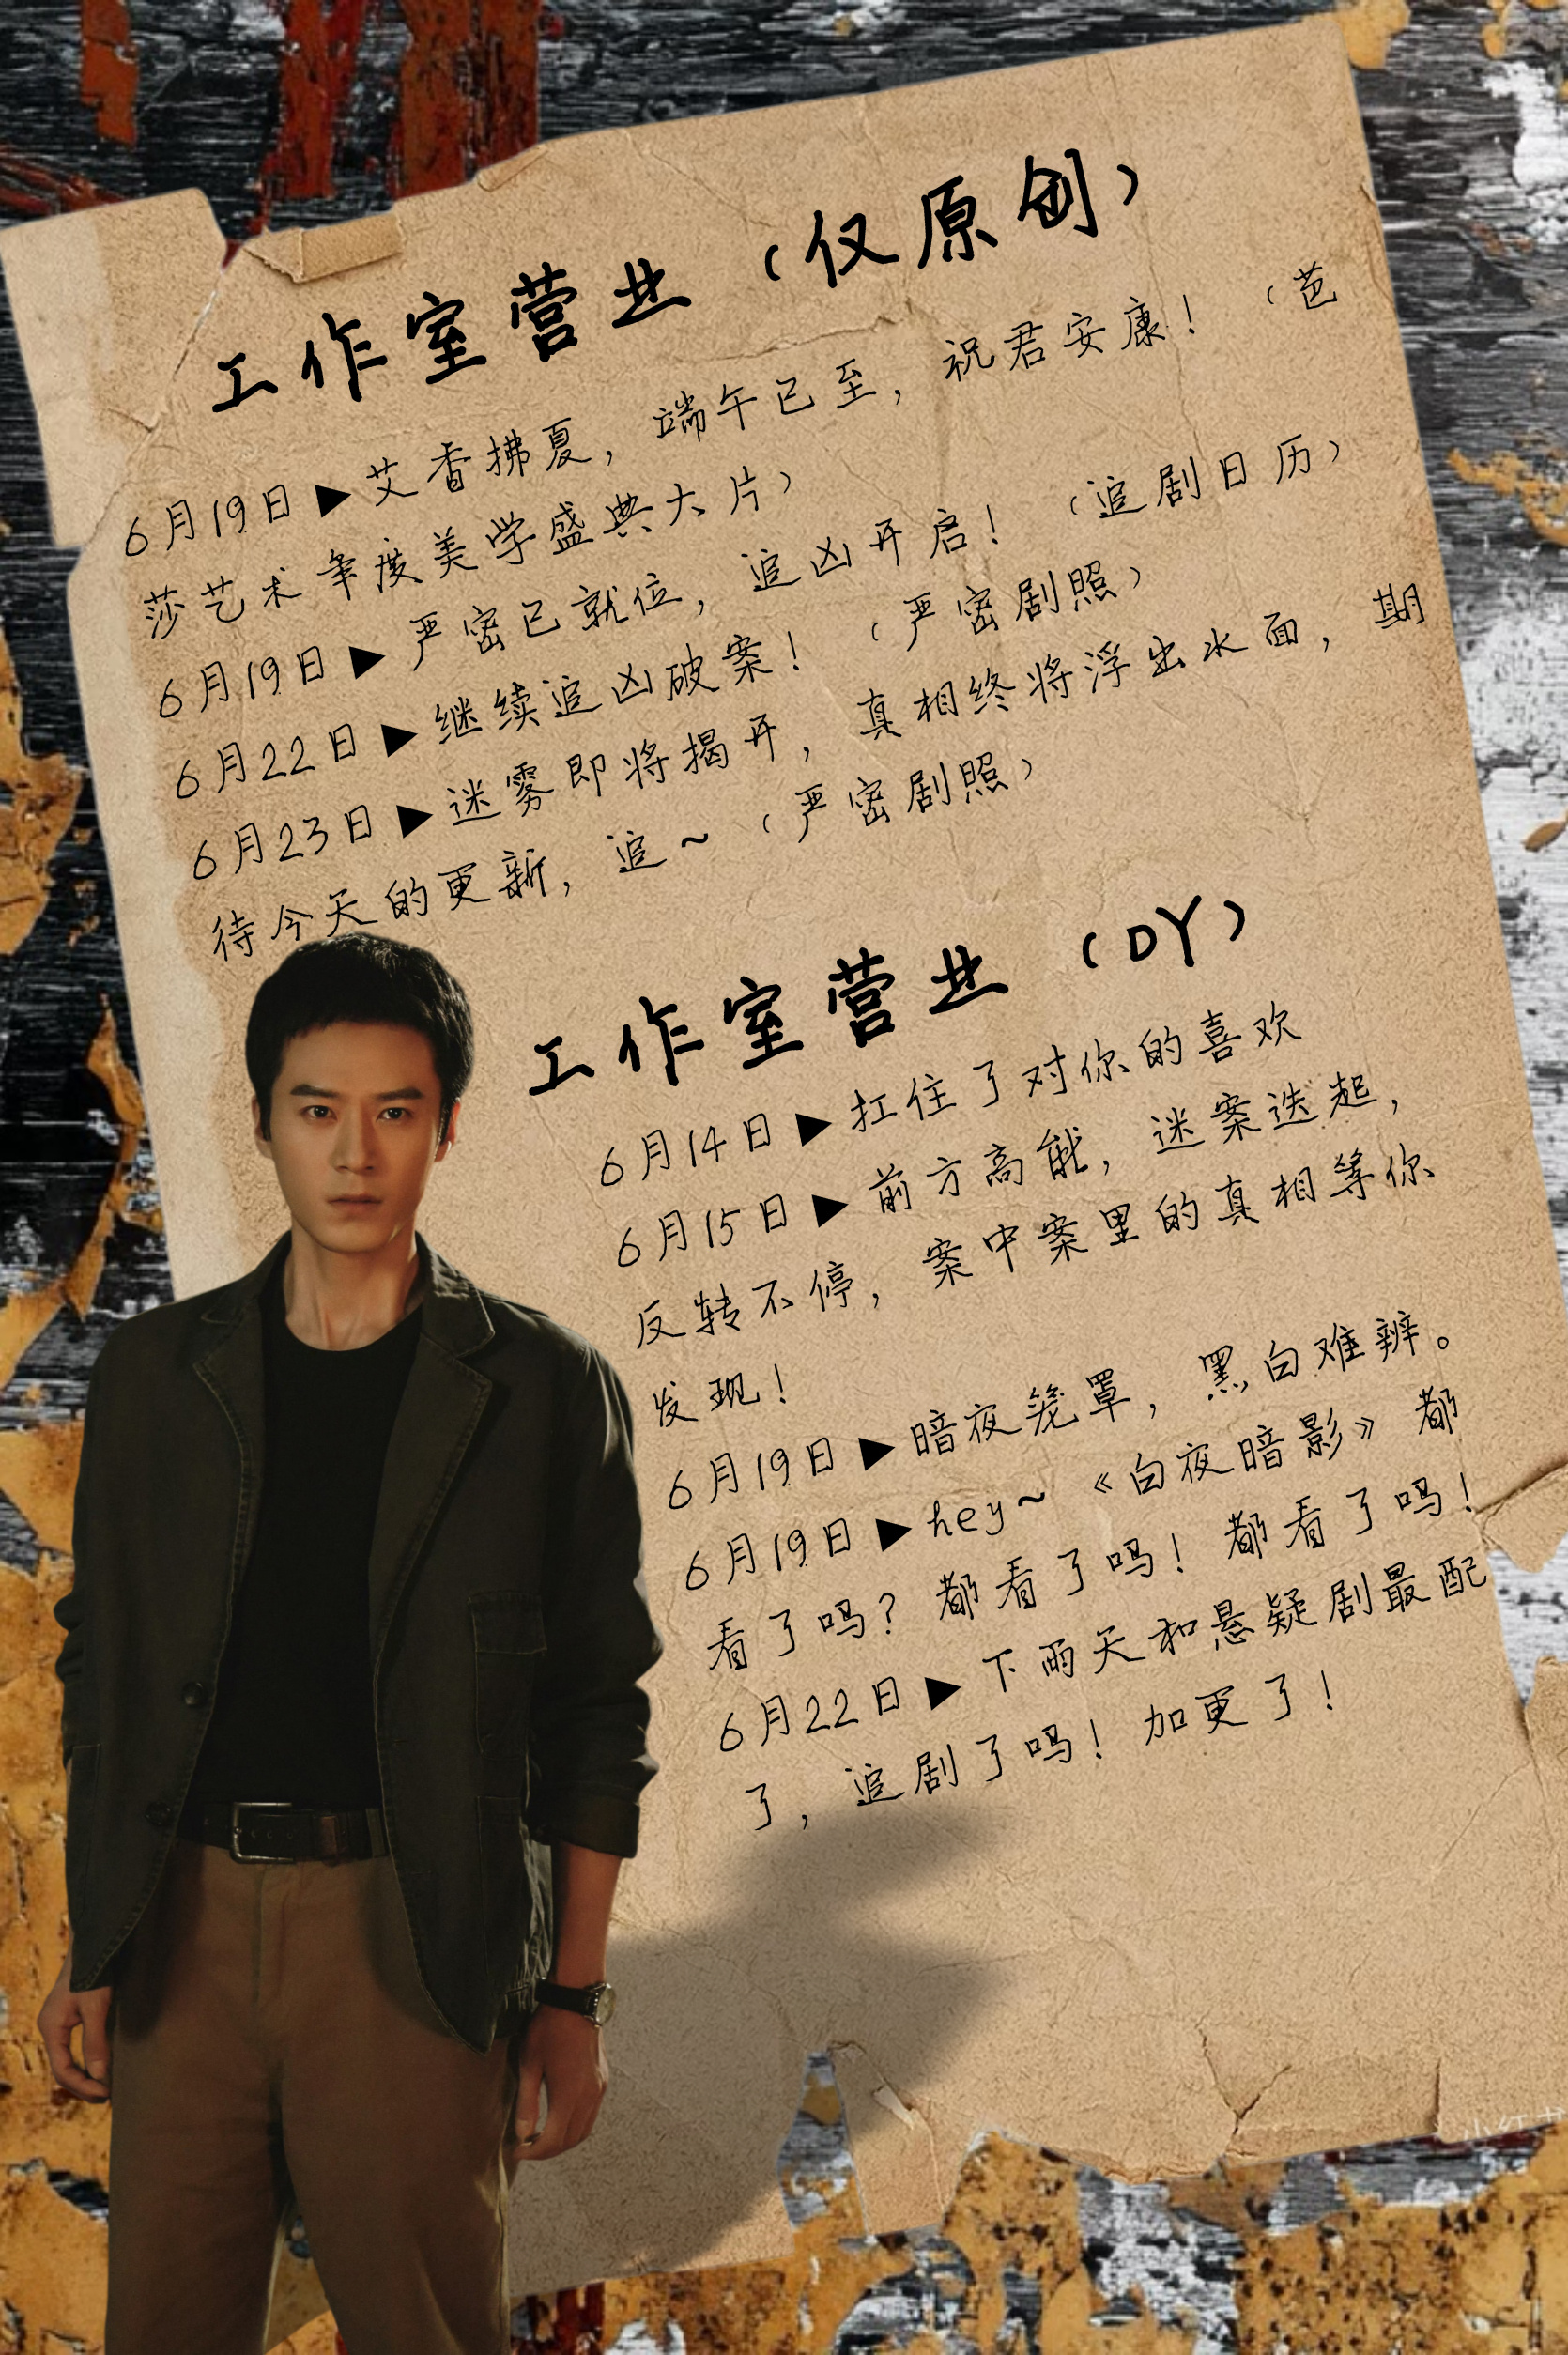 工作室营业（仅原创）
6月19日▶艾香拂夏，端午已至，祝君安康！（芭
莎艺术年度美学盛典大片）
6月19日▶严密已就位，追凶开启！（追剧日历）
6月22日▶继续追凶破案！（严密剧照）
6月23日▶迷雾即将揭开，真相终将浮出水面，期
待今天的更新，追~（严密剧照）
工作室营业（DY）
6月14日▶扛住了对你的喜欢
6月15日▶前方高能，迷案迭起，
反转不停，案中案里的真相等你
发现！
6月19日▶暗夜笼罩，黑白难辨。
6月19日▶hey~《白夜暗影》都
看了吗？都看了吗！都看了吗！
6月22日▶下雨天和悬疑剧最配
了，追剧了吗！加更了！